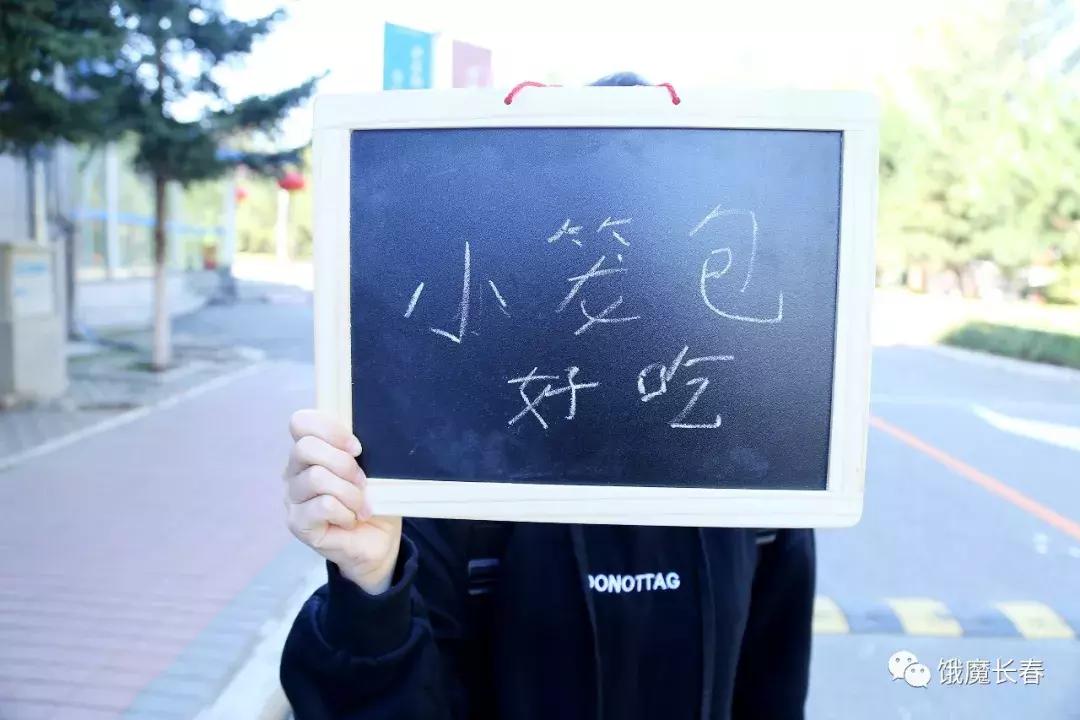 小笼包
好吃
DONOTTAG
饿魔长春